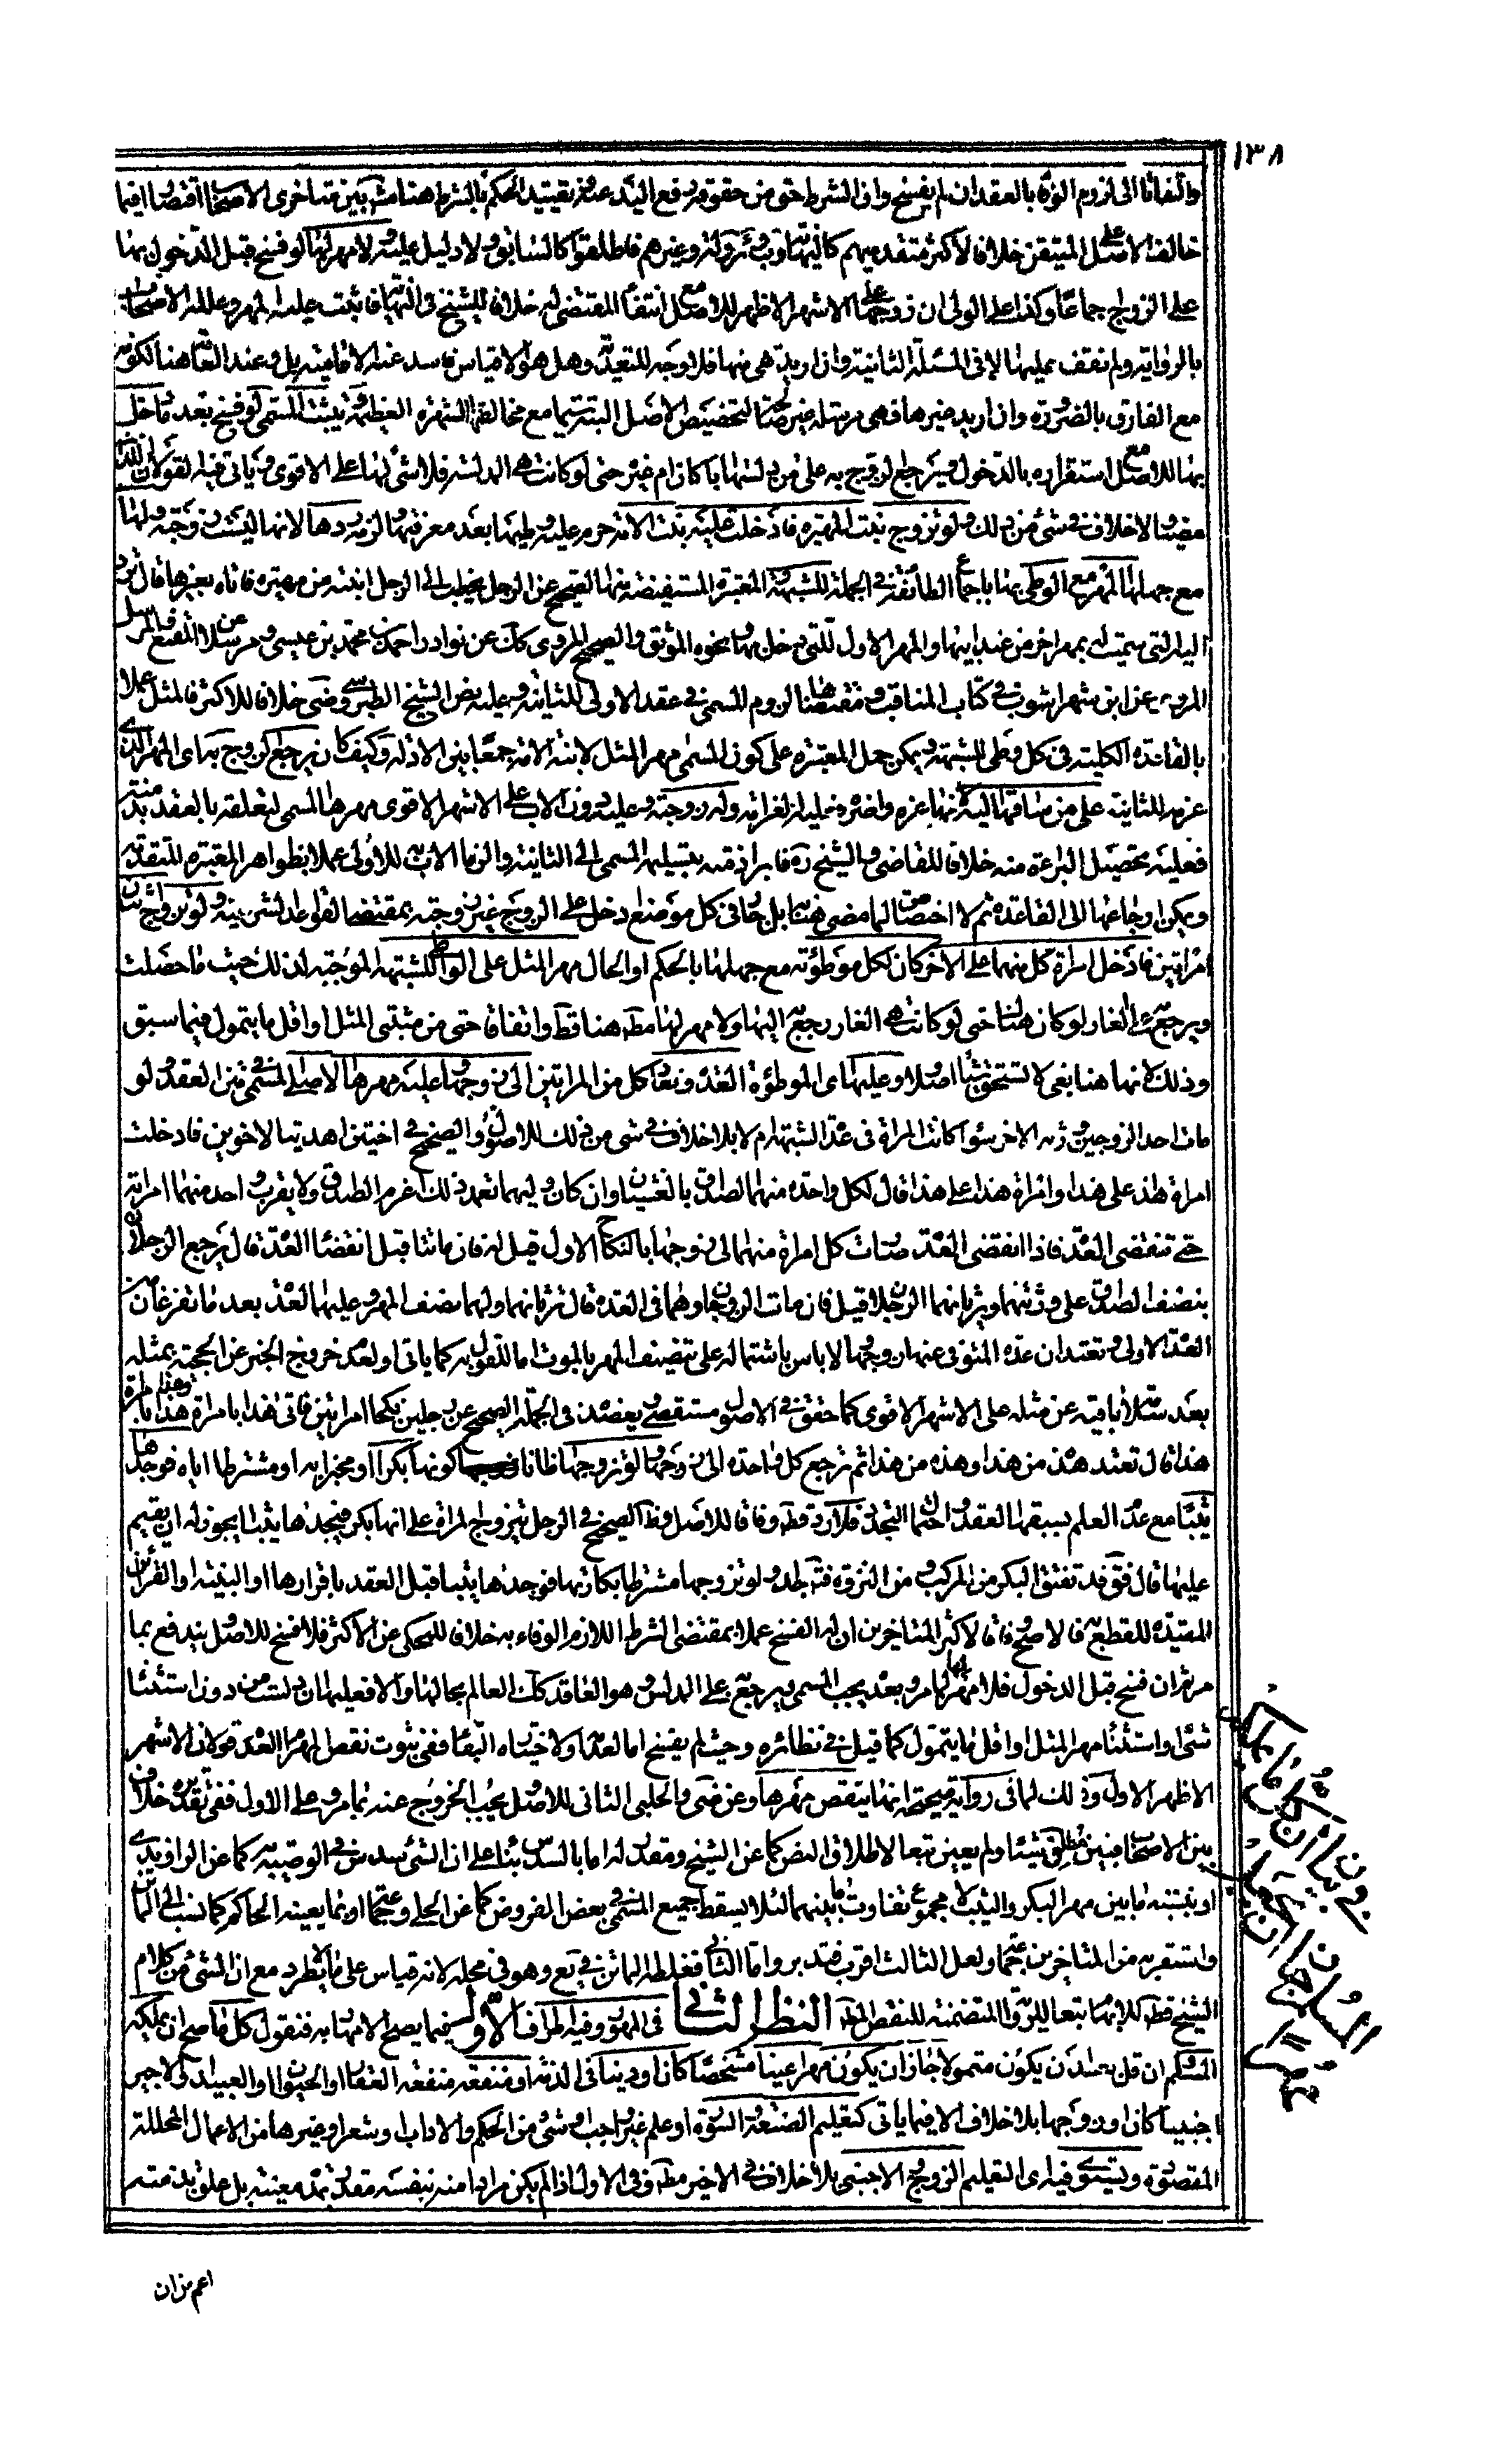 ١٣٨
والتفاتا الى لزوم الوفاء بالعقد ان لم يفسخ وان الشرط حق من حقوقه يرفع اليد عنه تقييد الحكم بالشرط هنا مشتركين متاخرى الاصحاب اقتصارا فيما
خالف الاصل على المتيقن خلافا لاكثر متقدميهم كالنهاية وغيرهم فاطلقوا كالسابق ولا دليل عليه ولا مهر لها لو فسخ قبل الدخول بها
على الزواج جماعا وكذا على الولى ان زوجها على الاشهر الاظهر للاصل مع انتفاء المقتضى له خلافا للشيخ فى النهاية فاثبت عليه المهر وعلله الاصحاب
بالرواية ولم نقف عليها الا فى المسئلة الثانية وان اريد هى منها فلا وجه للتعدية وهل هو الا قياس فاسد عنه الامامية بل وعند العامة هنا لكونه
مع الفارق بالضرورة وان اريد غيرها فهى مرسلة غير صالحة لتخصيص الاصل البتة سيما مع مخالفتها الشهرة العظيمة ويثبت المسمى لو فسخ بعد ما دخل
بها للاصل مع استقراره بالدخول ويرجع الزوج به على من دلسها ابا كان ام غيره حتى لو كانت هى المدلسة فلا شئ لها على الاقوى وياتى فيه القولان
مضيا ولا خلاف فى شئ من ذلك ولو تزوج بنت المهيرة فادخلت عليه بنت الامة حرم عليه وطيها بعد معرفتها ولزم ردها لانها ليست زوجته ولها
مع جهلها المهر مع الوطى بها باجماع الطائفة فى الجملة للشبهة والمعتبرة المستفيضة منها الصحيح عن الرجل يخطب الى الرجل ابنته من مهيرة فاتاه بغيرها قال ترد
اليه التى سميت له بمهر اخر من عند ابيها والمهر الاول للتى دخل بها ونحوه الموثق والصحيح المروى كك عن نوادر احمد بن محمد بن عيسى ومرسلا عن المقنع والمرسل
المروى عن ابن شهراشوب فى كتاب المناقب ومقتضاها هنا لزوم المسمى فى عقد الاولى للثانية وعليه نص الشيخ الطبرسى وضى خلافا للاكثر فالمثل عملا
بالقاعدة الكلية فى كل وطى للشبهة ويمكن حمل المعتبرة على كون المسمى مهر المثل لابنة الامة جمعا بين الادلة وكيف كان يرجع الزوج به اى المهر الذى
غرمه للثانية على من ساقها اليه لانها غره واغتره فعليه الغرامة وله زوجته وعليه دون الاب على الاشهر الاقوى مهرها المسمى لتعلقه بالعقد بذمته
فعليه تحصيل البراءة منه خلافا للقاضى والشيخ ره فابرا ذمته بتسليم المسمى الى الثانية والزما الاب به للاولى عملا بظواهر المعتبرة المتقدمة
ويمكن ارجاعها الى القاعدة ثم لا اختصاص لما مضى هنا بل جار فى كل موضع ادخل على الزوج غير زوجته بمقتضى القواعد الشرعية ولو تزوج اثنان
امراتين فادخل امراة كل منهما على الاخر كان لكل موطوئة مع جهلها بالحكم او الحال مهر المثل على الواطى للشبهة الموجبة لذلك حيث ما حصلت
ويرجع به على الغار لو كان هنا حتى لو كانت هى الغار رجع به اليها ولا مهر لها مط هنا قط واتفاقا حتى من مثبتى المثل او اقل ما يتمول فيما سبق
وذلك لانها هنا بغى لا تستحق شيئا اصلا وعليها اى الموطوئة العدة وتعاد كل من المراتين الى زوجها وعليه مهرها الاصلى المسمى فى متن العقد ولو
مات احد الزوجين ورثه الاخر سواء كانت المراة فى عدة الشبهة ام لا بلا خلاف فى شئ من ذلك للاصول والصحيح فى اختين اهديتا لاخوين فادخلت
امراة هذا على هذا وامراة هذا على هذا قال لكل واحدة منهما الصداق بالغشيان وان كان وليهما تعمد ذلك اغرم الصداق ولا يقرب واحد منهما امراته
حتى تنقضى العدة فاذا انقضى العدة صارت كل امراة منهما الى زوجها بالنكاح الاول قيل له فان ماتتا قبل انقضاء العدة قال يرجع الزوجان
بنصف الصداق على ورثتهما ويرثانهما الرجلان قيل فان مات الزوجان وهما فى العدة قال ترثانهما ولهما نصف المهر وعليهما العدة بعد ما تفرغان من
العدة الاولى وتعتدان عدة المتوفى عنها زوجها ولا باس باشتماله على تنصيف المهر بالموت اما للقول به كما ياتى او لعدم خروج الخبر عن الحجية بمثله
بعد سلامة باقيه عن مثله على الاشهر الاقوى كما حقق فى الاصول مستقصى ويعضده فى الجملة الصحيح عن رجلين نكحا امراتين فاتى هذا بامراة هذا وهذا بامراة
هذا قال تعتد هذه من هذا وهذه من هذا ثم ترجع كل واحدة الى زوجها ولو تزوجها ظانا كونها بكرا او مخبرا به او مشترطا اياه فوجدها
ثيبا مع عدم العلم بسبقها العقد واحتمال التجدد فلا رد قط وفاقا للاصل وظ الصحيح فى الرجل يتزوج المراة على انها بكر فيجدها ثيبا ايجوز له ان يقيم
عليها قال فق قد تفتق البكر من المركب ومن النزوة ولو تزوجها مشترطا بكارتها فوجدها ثيبا قبل العقد باقرارها او البينة او القرائن
المفيدة للقطع به فالاصح وفاقا لاكثر المتاخرين ان له الفسخ عملا بمقتضى الشرط اللازم الوفاء به خلافا للمحكى عن الاكثر فلا فسخ للاصل يندفع بما
مر ثم ان فسخ قبل الدخول فلا مهر لها لما مر وبعده يجب المسمى ويرجع به على المدلس وهو العاقد كك العالم بحالها والا فعليها ان دلست من دون استثناء
شئ او استثناء مهر المثل او اقل ما يتمول كما قيل فى نظائره وحيث لم يفسخ اما لعدم او لاختياره البقاء ففى ثبوت نقص المهر ام العدم قولان الاشهر
الاظهر الاول وذلك لما فى رواية صحيحة انها ينتقص مهرها وعن ضى والحلبى الثانى للاصل يجب الخروج عنه بما مر وعلى الاول ففى تقديره خلاف
بين الاصحاب فبين مطلق شيئا ولم يعين تبعا لاطلاق النص كما عن الشيخ ومقدر له اما بالسدس بناء على ان الشئ سدس فى الوصية كما عن الراوندى
او بنسبته ما بين مهر البكر والثيب لا مجموع تفاوت ما بينهما لئلا يسقط جميع المسمى فى بعض الفروض كما عن الحلى وجماعة او بما يعينه الحاكم كما نسب الى الماتن
واستقربه من المتاخرين جماعة ولعل الثالث اقرب فتدبر واما الثانى فغلطه الماتن فى يع وهو فى محله لانه قياس على ما لا يطرد مع ان الشئ من كلام
الشيخ قط كلامها تبعا للرواية المتضمنة للنقص المط النظر الثانى فى المهور وفيه اطراف الاول فيما يصح الامهار به فنقول كل ما صح ان يملكه
المسلم ان قل بعد ان يكون متمولا جاز ان يكون مهرا عينا مشخصا كان او دينا فى الذمة او منفعة منفعة العقار او الحيوان او العبيد او الاجير
اجنبيا كان او زوجها بلا خلاف الا فيما ياتى كتعليم الصنعة والسورة او علم غير واجب او شئ من الحكم والاداب او شعر او غيرها من الاعمال المحللة
المقصودة ويستوى فيه اى التعليم الزوج والاجنبى بلا خلاف فى الاخير مط وفى الاول اذا لم يكن مرادا منه بنفسه مقدر بمدة معينة بل علق بذمته
اعم من ان